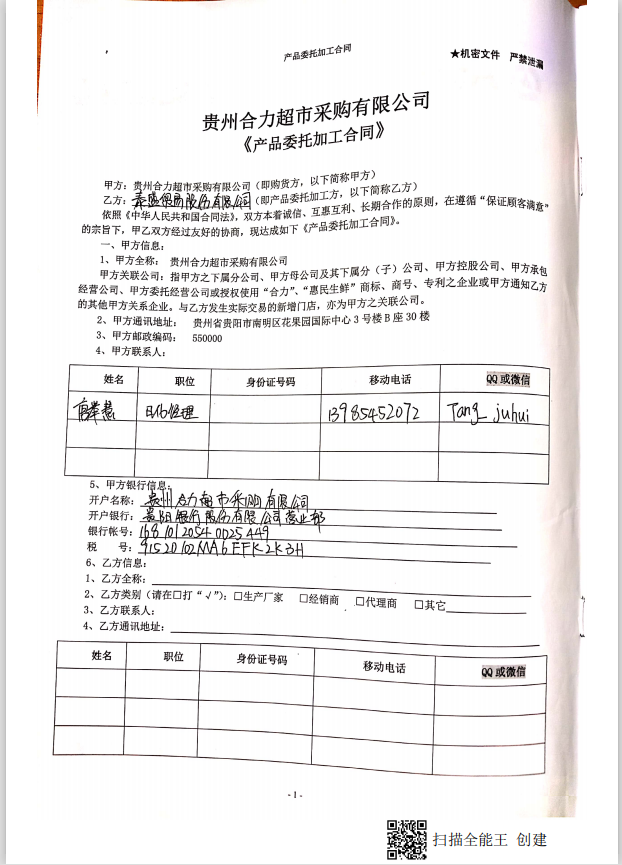 产品委托加工合同
★机密文件 严禁泄漏
贵州合力超市采购有限公司
《产品委托加工合同》
甲方：贵州合力超市采购有限公司（即购货方，以下简称甲方）
乙方：泰盛贸易股份有限公司（即产品委托加工方，以下简称乙方）
依照《中华人民共和国合同法》，双方本着诚信、互惠互利、长期合作的原则，在遵循“保证顾客满意”
的宗旨下，甲乙双方经过友好的协商，现达成如下《产品委托加工合同》。
一、甲方信息：
1、甲方全称： 贵州合力超市采购有限公司
甲方关联公司：指甲方之下属分公司、甲方母公司及其下属分（子）公司、甲方控股公司、甲方承包
经营公司、甲方委托经营公司或授权使用“合力”、“惠民生鲜”商标、商号、专利之企业或甲方通知乙方
的其他甲方关系企业。与乙方发生实际交易的新增门店，亦为甲方之关联公司。
2、甲方通讯地址： 贵州省贵阳市南明区花果园国际中心 3 号楼 B 座 30 楼
3、甲方邮政编码： 550000
4、甲方联系人：
姓名 职位 身份证号码 移动电话 QQ 或微信
日化经理 13985452072 Tang_juhui
5、甲方银行信息：
开户名称：贵州合力超市采购有限公司
开户银行：贵阳银行股份有限公司营业部
银行帐号：16810120540025449
税 号：91520102MA6FFK2K3H
6、乙方信息：
1、乙方全称：
2、乙方类别（请在□打“√”）：□生产厂家 □经销商 □代理商 □其它
3、乙方联系人：
4、乙方通讯地址：
姓名 职位 身份证号码 移动电话 QQ 或微信
- 1 -
扫描全能王 创建